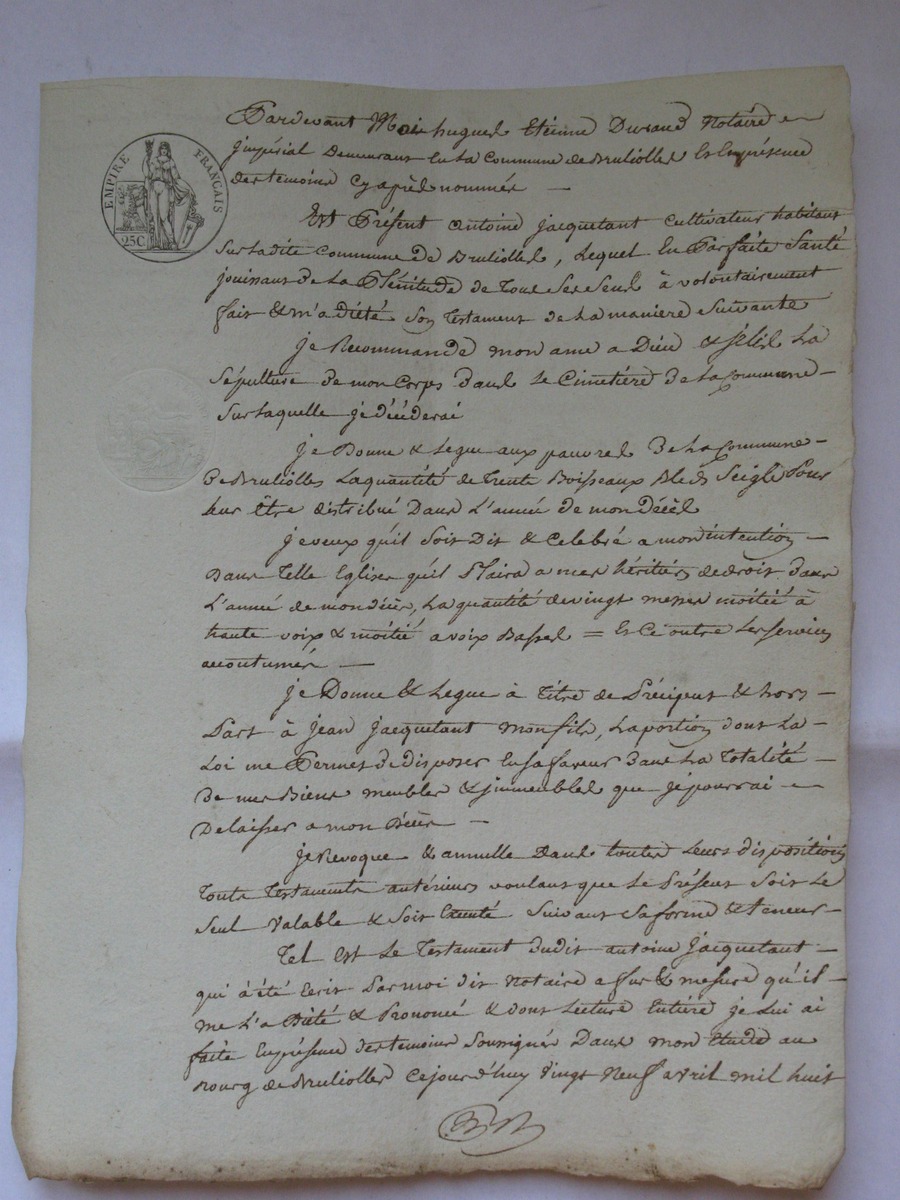 EMPIRE FRANÇAIS
25C
Pardevant Moi hugues Etienne Durand Notaire
jmpérial Demeurant En La Commune de Brulliolles Et En présence
des temoins Cy après nommés —
Est Présent antoine jacquetant Cultivateur habitant
Sur La dite Commune de Brulliolles, Lequel En Parfaite Santé
jouissant de La Plénitude de Tous Ses Sens à volontairement
fait & m'a dicté Son Testament de La maniere Suivante
je Recommande mon ame a Dieu & Elis La
Sépulture de mon Corps dans Le Cimetière de La Commune —
Sur Laquelle je décéderai
je Donne & Legue aux pauvres de La Commune —
de Brulliolles La quantité de Trente Boisseaux Bled Seigle Pour
leur Être distribué Dans L'année de mon décès
je veux qu'il Soit Dit & Celebré a mon intention —
Dans Telle Eglise qu'il Plaira a mes héritiers de droit dans
L'année de mon décès, La quantité de vingt messes moitié à
haute voix & moitié a voix Basse = Et Ce outre Les Services
accoutumés —
je Donne & Legue à Titre de Préciput & hors —
Part à jean jacquetant mon fils, La portion dont La —
Loi me Permet de disposer En Sa faveur dans La Totalité —
De mes Biens meubles & jmmeubles que je pourrai —
Delaisser a mon Décès —
je Revoque & annulle Dans toutes Leurs dispositions
Touts Testaments antérieurs voulant que Le Présent Soit Le
Seul valable & Soit Exécuté Suivant Sa forme & teneur —
Tel Est Le Testament dudit antoine Jacquetant —
qui à été Ecrit Par moi dit Notaire a fur & mesure qu'il —
me L'a Dicté & Prononcé & dont Lecture Entière je Lui ai
faite En présence des temoins Soussignés Dans mon Etude au
Bourg de Brulliolles Ce jour d'huy Vingt Neuf avril mil huit